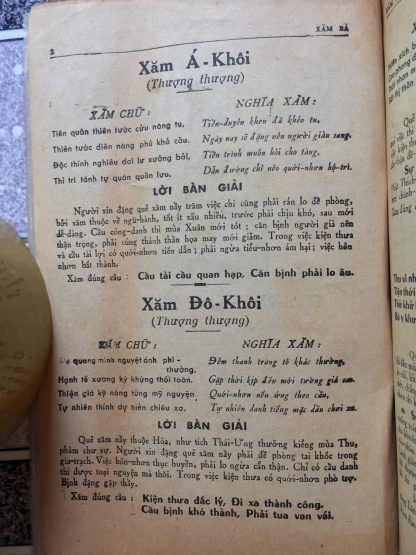 2
XĂM BÀ
Xăm Á - Khôi
(Thượng thượng)
XĂM CHỮ :
NGHĨA XĂM :
Tiên quân thiên tước cửu nàng tu,
Tiền-duyên khen đã khéo tu,
Thiên tước diên nàng phú khả cầu.
Ngày nay sẽ đặng nên người giàu sang.
Độc thính nghiêu dai lư xướng bãi,
Tiền trình muôn hồi cho tàng,
Thi tri tánh tự quán quần lưu.
Dẫn đường chỉ nẻo quới-nhơn hộ-trì.
LỜI BÀN GIẢI
Người xin đặng quẻ xăm này trăm việc chi cũng phải rán lo đề phòng,
bởi xăm thuộc về ngũ-hành, tốt ít xấu nhiều, trước phải chịu khó, sau mới
dễ-dàng. Cầu công-danh thi mùa Xuân mới tốt ; căn bịnh người già nên
thận trọng, phải cúng thánh thần họa may mới giảm. Trong việc kiện thưa
và cầu tài lợi có quới-nhơn tiến dẫn ; phải ngừa tiểu-nhơn ám hại ; việc hôn
nhơn bất thành.
Xăm đúng câu : Cầu tài cầu quan hạp, Căn bịnh phải lo âu.
Xăm Đô-Khôi
(Thượng thượng)
XĂM CHỮ :
NGHĨA XĂM :
Dạ quang minh nguyệt ánh phi-
thường,
Đêm thanh trăng tỏ khác thường,
Hạnh tế xương kỳ khủng thái toàn.
Gặp thời kịp đến mới tường giá cao.
Thiện gió kỳ nàng tùng mỹ nguyện
Quới-nhơn nếu ứng theo cầu,
Tự nhiên thính dự hiên chiêu xa.
Tự nhiên danh tiếng mặc dầu chơi xa.
LỜI BÀN GIẢI
Quẻ xăm nầy thuộc Hỏa, như tích Thái-U'ng thưởng kiểng mùa Thu,
phàm chư sự. Người xin đặng quẻ xăm nầy phải đề phòng tai khốc trong
gia-trạch. Việc hôn-nhơn thục huyền, phải lo ngừa cẩn thận. Chỉ có cầu danh
thì được toại nguyện mà thôi. Trong việc kiện thưa có quới-nhơn phò trợ.
Bịnh đặng gặp thầy.
Xăm đúng câu : Kiện thưa đắc lý, Đi xa thành công.
Cầu bịnh khó thành, Phải tua van vái.